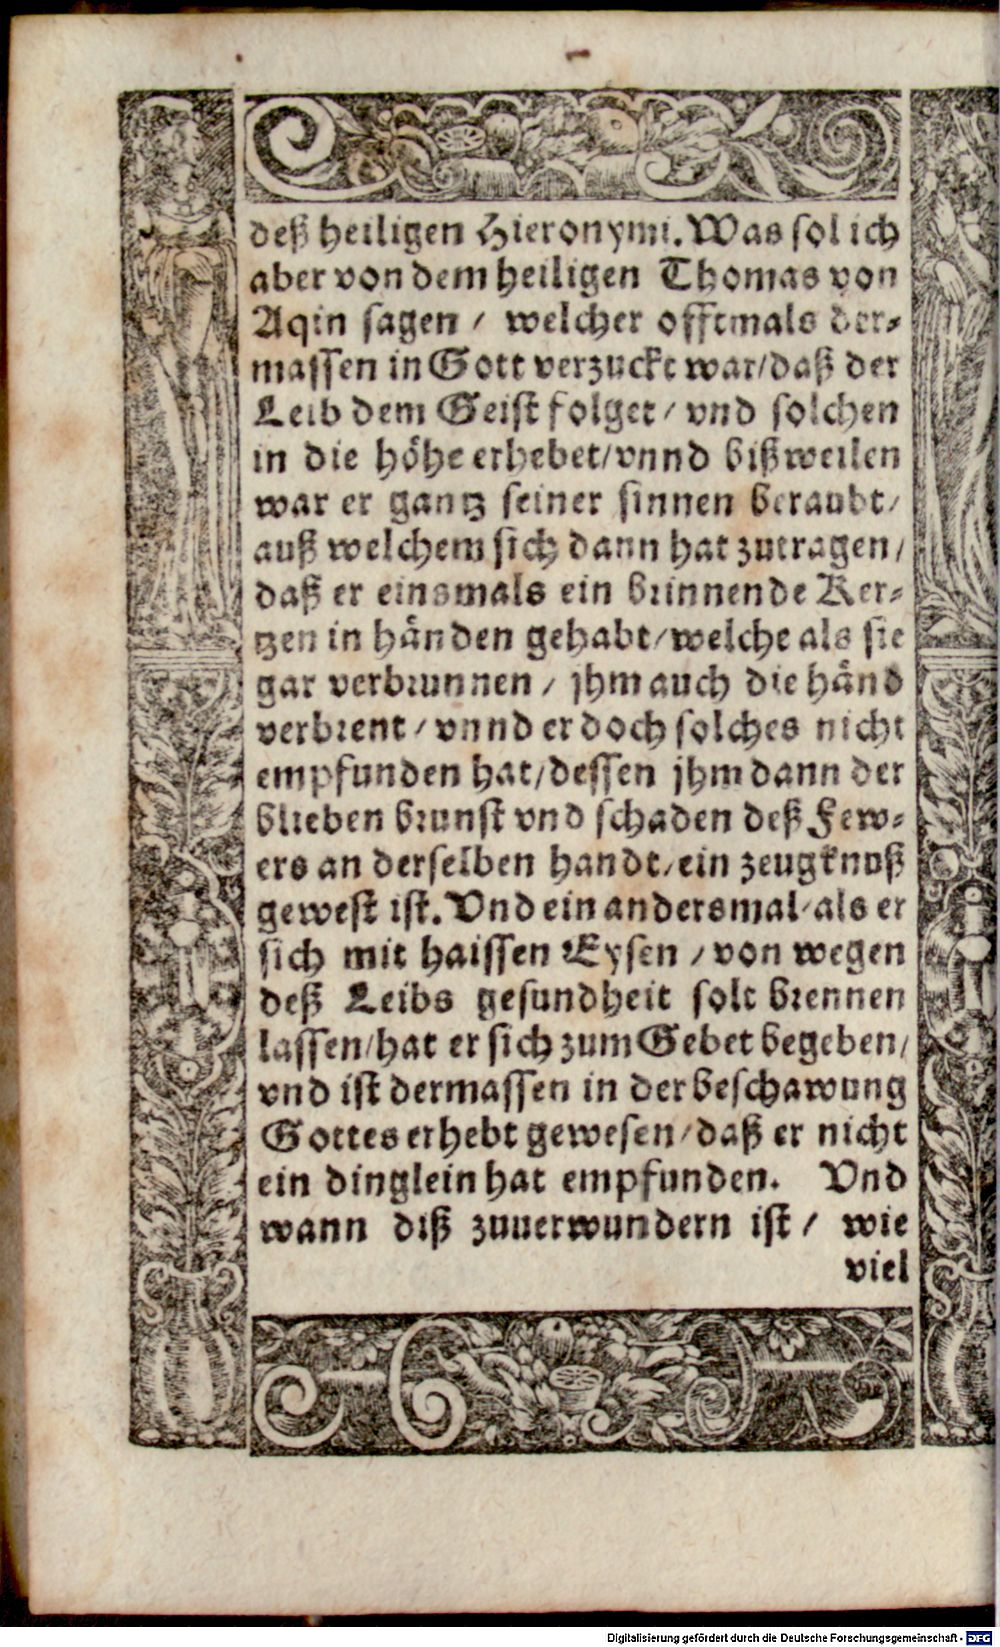 deß heiligen Hieronymi. Was sol ich
aber von dem heiligen Thomas von
Aqin sagen / welcher offtmals der⸗
massen in Gott verzuckt war/daß der
Leib dem Geist folget / vnd solchen
in die höhe erhebet/vnnd bißweilen
war er gantz seiner sinnen beraubt/
auß welchem sich dann hat zutragen/
daß er einsmals ein brinnende Ker⸗
tzen in händen gehabt/welche als sie
gar verbrunnen / jhm auch die händ
verbrent / vnnd er doch solches nicht
empfunden hat/dessen jhm dann der
blieben brunst vnd schaden deß Few⸗
ers an derselben handt/ein zeugknuß
gewest ist. Vnd ein andersmal/als er
sich mit haissen Eysen / von wegen
deß Leibs gesundheit solt brennen
lassen/hat er sich zum Gebet begeben/
vnd ist dermassen in der beschawung
Gottes erhebt gewesen/daß er nicht
ein dinglein hat empfunden. Vnd
wann diß zuuerwundern ist / wie
viel
Digitalisierung gefördert durch die Deutsche Forschungsgemeinschaft - DFG